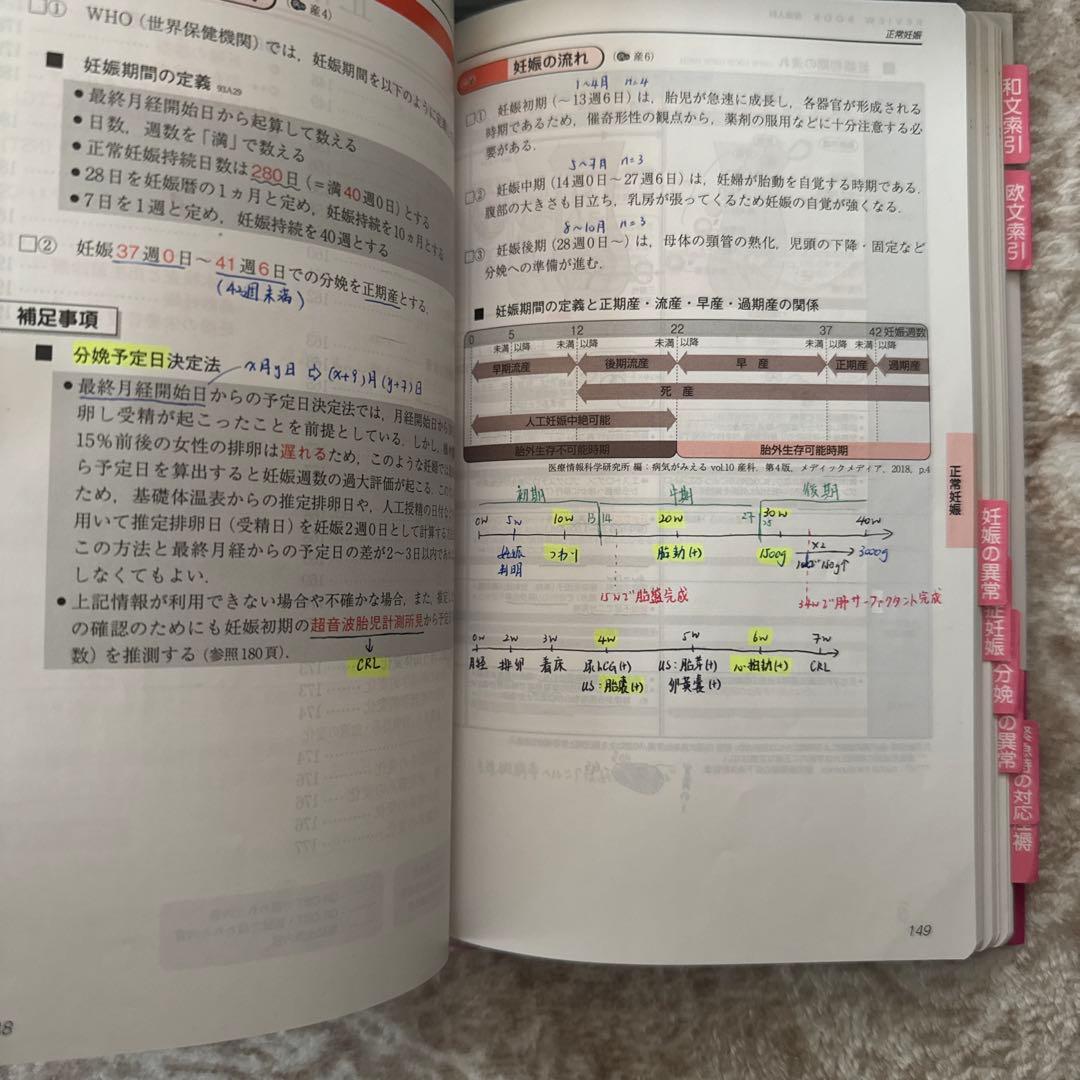 産4)
□① WHO（世界保健機関）では，妊娠期間を以下のように定義し
■ 妊娠期間の定義 93A29
●最終月経開始日から起算して数える
●日数，週数を「満」で数える
●正常妊娠持続日数は280日（＝満40週0日）とする
●28日を妊娠暦の1ヵ月と定め，妊娠持続を10ヵ月とする
●7日を1週と定め，妊娠持続を40週とする
□② 妊娠37週0日～41週6日での分娩を正期産とする．
(42週未満)
補足事項
■ 分娩予定日決定法
x月y日 ⇨ (x+9)月(y+7)日
●最終月経開始日からの予定日決定法では，月経開始日から
卵し受精が起こったことを前提としている．しかし，
15％前後の女性の排卵は遅れるため，このような妊婦では
ら予定日を算出すると妊娠週数の過大評価が起こる．
ため，基礎体温表からの推定排卵日や，人工授精の日付な
用いて推定排卵日（受精日）を妊娠2週0日として計算する
この方法と最終月経からの予定日の差が2～3日以内であ
しなくてもよい．
●上記情報が利用できない場合や不確かな場合，また，推定
の確認のためにも妊娠初期の超音波胎児計測所見から予定
数）を推測する（参照180頁）．
CRL
REVIEW BOOK 産婦人科
正常妊娠
妊娠の流れ （産6）
1～4月 n=4
□① 妊娠初期（～13週6日）は，胎児が急速に成長し，各器官が形成される
時期であるため，催奇形性の観点から，薬剤の服用などに十分注意する必
要がある．
5～7月 n=3
□② 妊娠中期（14週0日～27週6日）は，妊婦が胎動を自覚する時期である．
腹部の大きさも目立ち，乳房が張ってくるため妊娠の自覚が強くなる．
8～10月 n=3
□③ 妊娠後期（28週0日～）は，母体の頸管の熟化，児頭の下降・固定など
分娩への準備が進む．
■ 妊娠期間の定義と正期産・流産・早産・過期産の関係
0 5 12 22 37 42 妊娠週数
未満 以降 未満 以降 未満 以降 未満 以降 未満 以降
早期流産 後期流産 早 産 正期産 過期産
死 産
人工妊娠中絶可能
胎外生存不可能時期 胎外生存可能時期
医療情報科学研究所 編：病気がみえる vol.10 産科．第4版，メディックメディア，2018，p.4
初期 中期 後期
0w 5w 10w 13 14 20w 27 28 30w 40w
妊娠判明 つわり 胎動(+) 1500g ×2 3000g
15wで胎盤完成
34wで肺サーファクタント完成
0w 2w 3w 4w 5w 6w 7w
月経 排卵 着床 尿hCG(+) US：胎芽(+) 心拍動(+) CRL
US：胎嚢(+) 卵黄嚢(+)
149
和文索引
欧文索引
正常妊娠
妊娠の異常
分娩
の異常
の対応